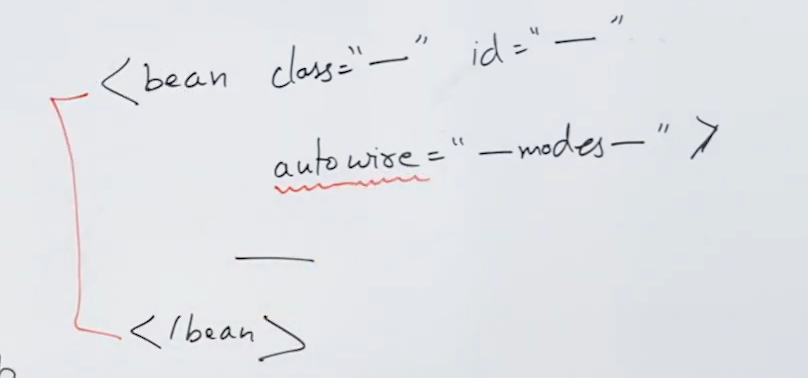 <bean class="—" id="—"
autowire="—modes—">
—
</bean>